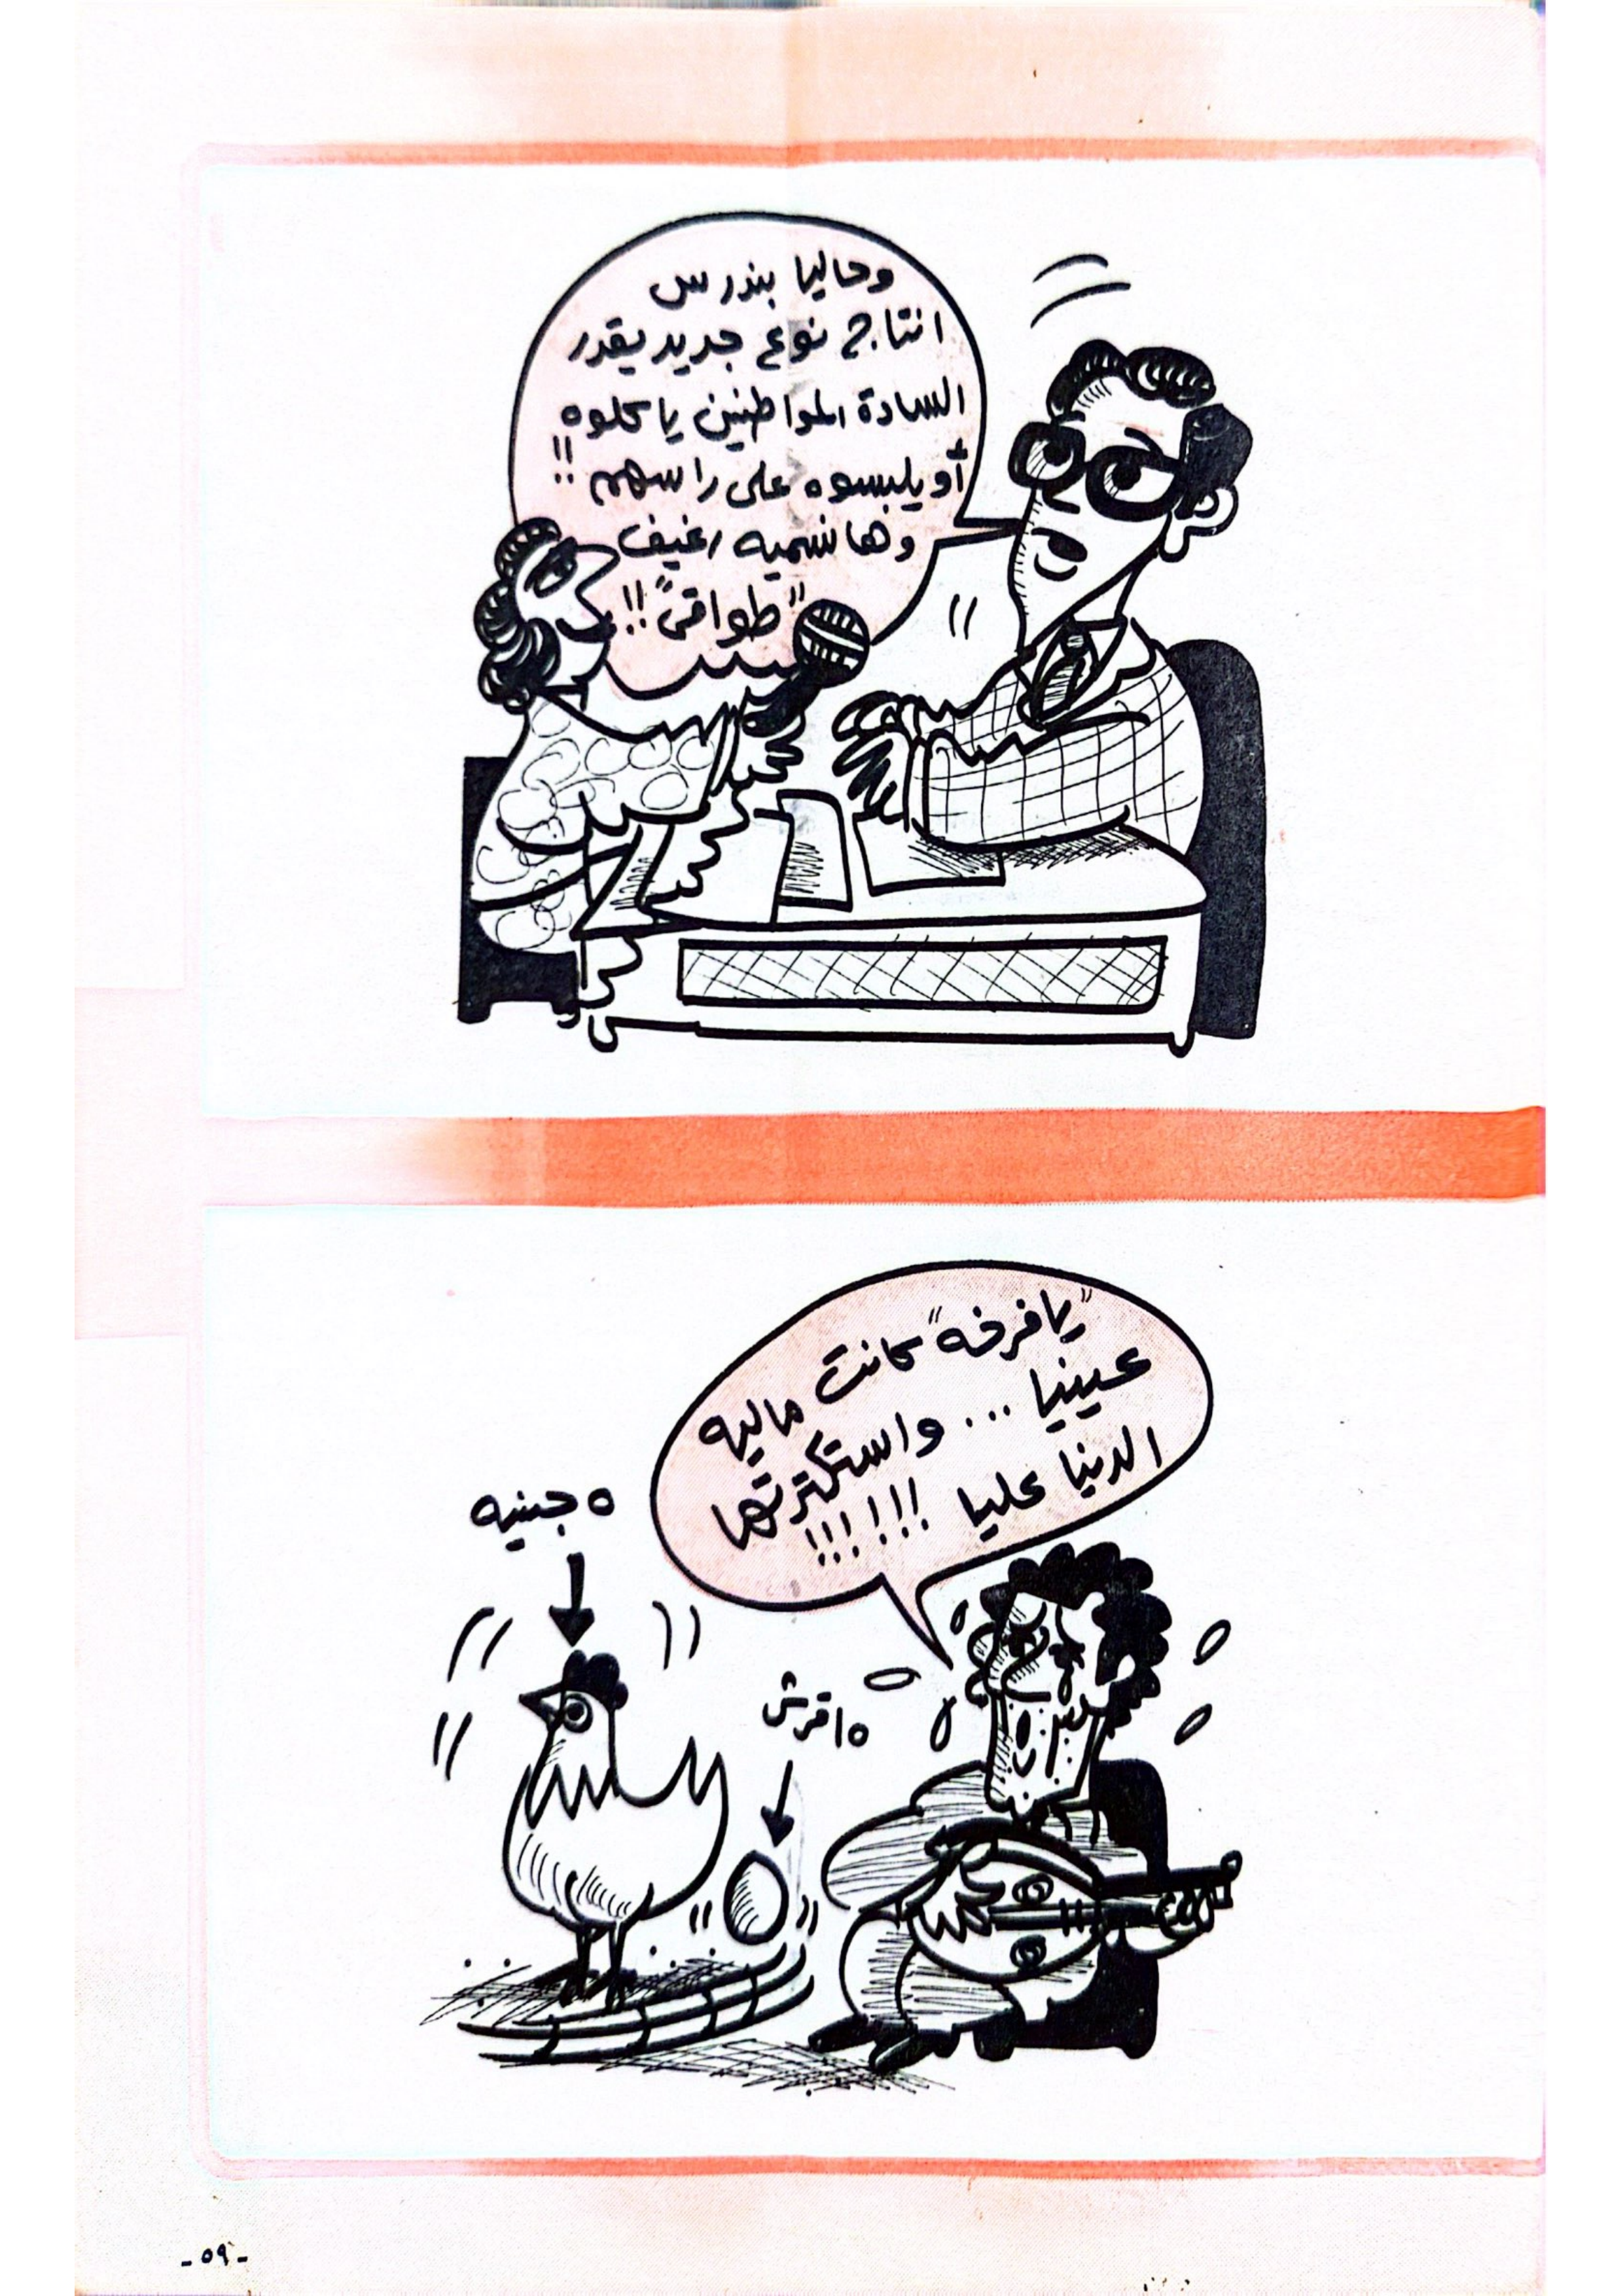 وحاليا بندرس
انتاج نوع جديد يقدر
السادة المواطنين ياكلوه
أو يلبسوه على راسهم !!
وهانسميه رغيف
"طواقى" !!
"يافرخه" كانت ماليه
عينيا ... واستكترتها
الدنيا عليا !!!!!!
٥ جنيه
١٥ قرش
-٥٩-